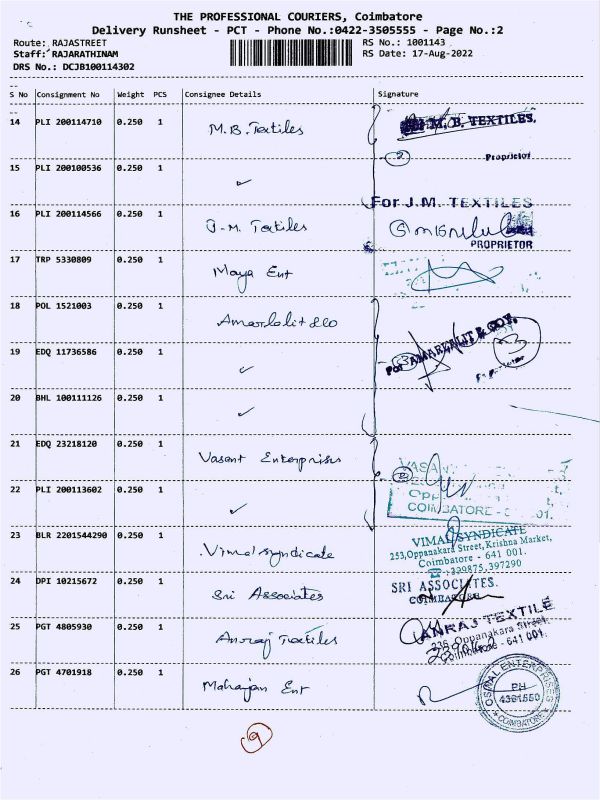 THE PROFESSIONAL COURIERS, Coimbatore
Delivery Runsheet - PCT - Phone No.:0422-3505555 - Page No.:2
Route: RAJASTREET RS No.: 1001143
Staff: RAJARATHINAM RS Date: 17-Aug-2022
DRS No.: DCJB100114302
--
S No Consignment No Weight PCS Consignee Details Signature
--
14 PLI 200114710 0.250 1 M.B. Textiles M. B. TEXTILES.
2 Proprietor
15 PLI 200100536 0.250 1 ✓
For J.M. TEXTILES
16 PLI 200114566 0.250 1 J.M. Textiles
PROPRIETOR
17 TRP 5330809 0.250 1 Maya Ent
18 POL 1521003 0.250 1
For AMARLALIT & COY.
3 3
19 EDQ 11736586 0.250 1 ✓
20 BHL 100111126 0.250 1 ✓
21 EDQ 23218120 0.250 1 Vasant Enterprises
VASAN
22 PLI 200113602 0.250 1 ✓
OPP
COIMBATORE - 01.
23 BLR 2201544290 0.250 1 Vimal Syndicate VIMAL SYNDICATE
253,Oppanakara Street, Krishna Market,
Coimbatore - 641 001.
☎ :329875,397290
24 DPI 10215672 0.250 1 Sri Associates SRI ASSOCIATES.
COIMBATORE
25 PGT 4805930 0.250 1 Anraj Textiles ANRAJ TEXTILE
236, Oppanakara Street,
Coimbatore - 641 001.
26 PGT 4701918 0.250 1 Mahajan Ent OSWAL ENTERPRISES
PH
4391550
COIMBATORE
9